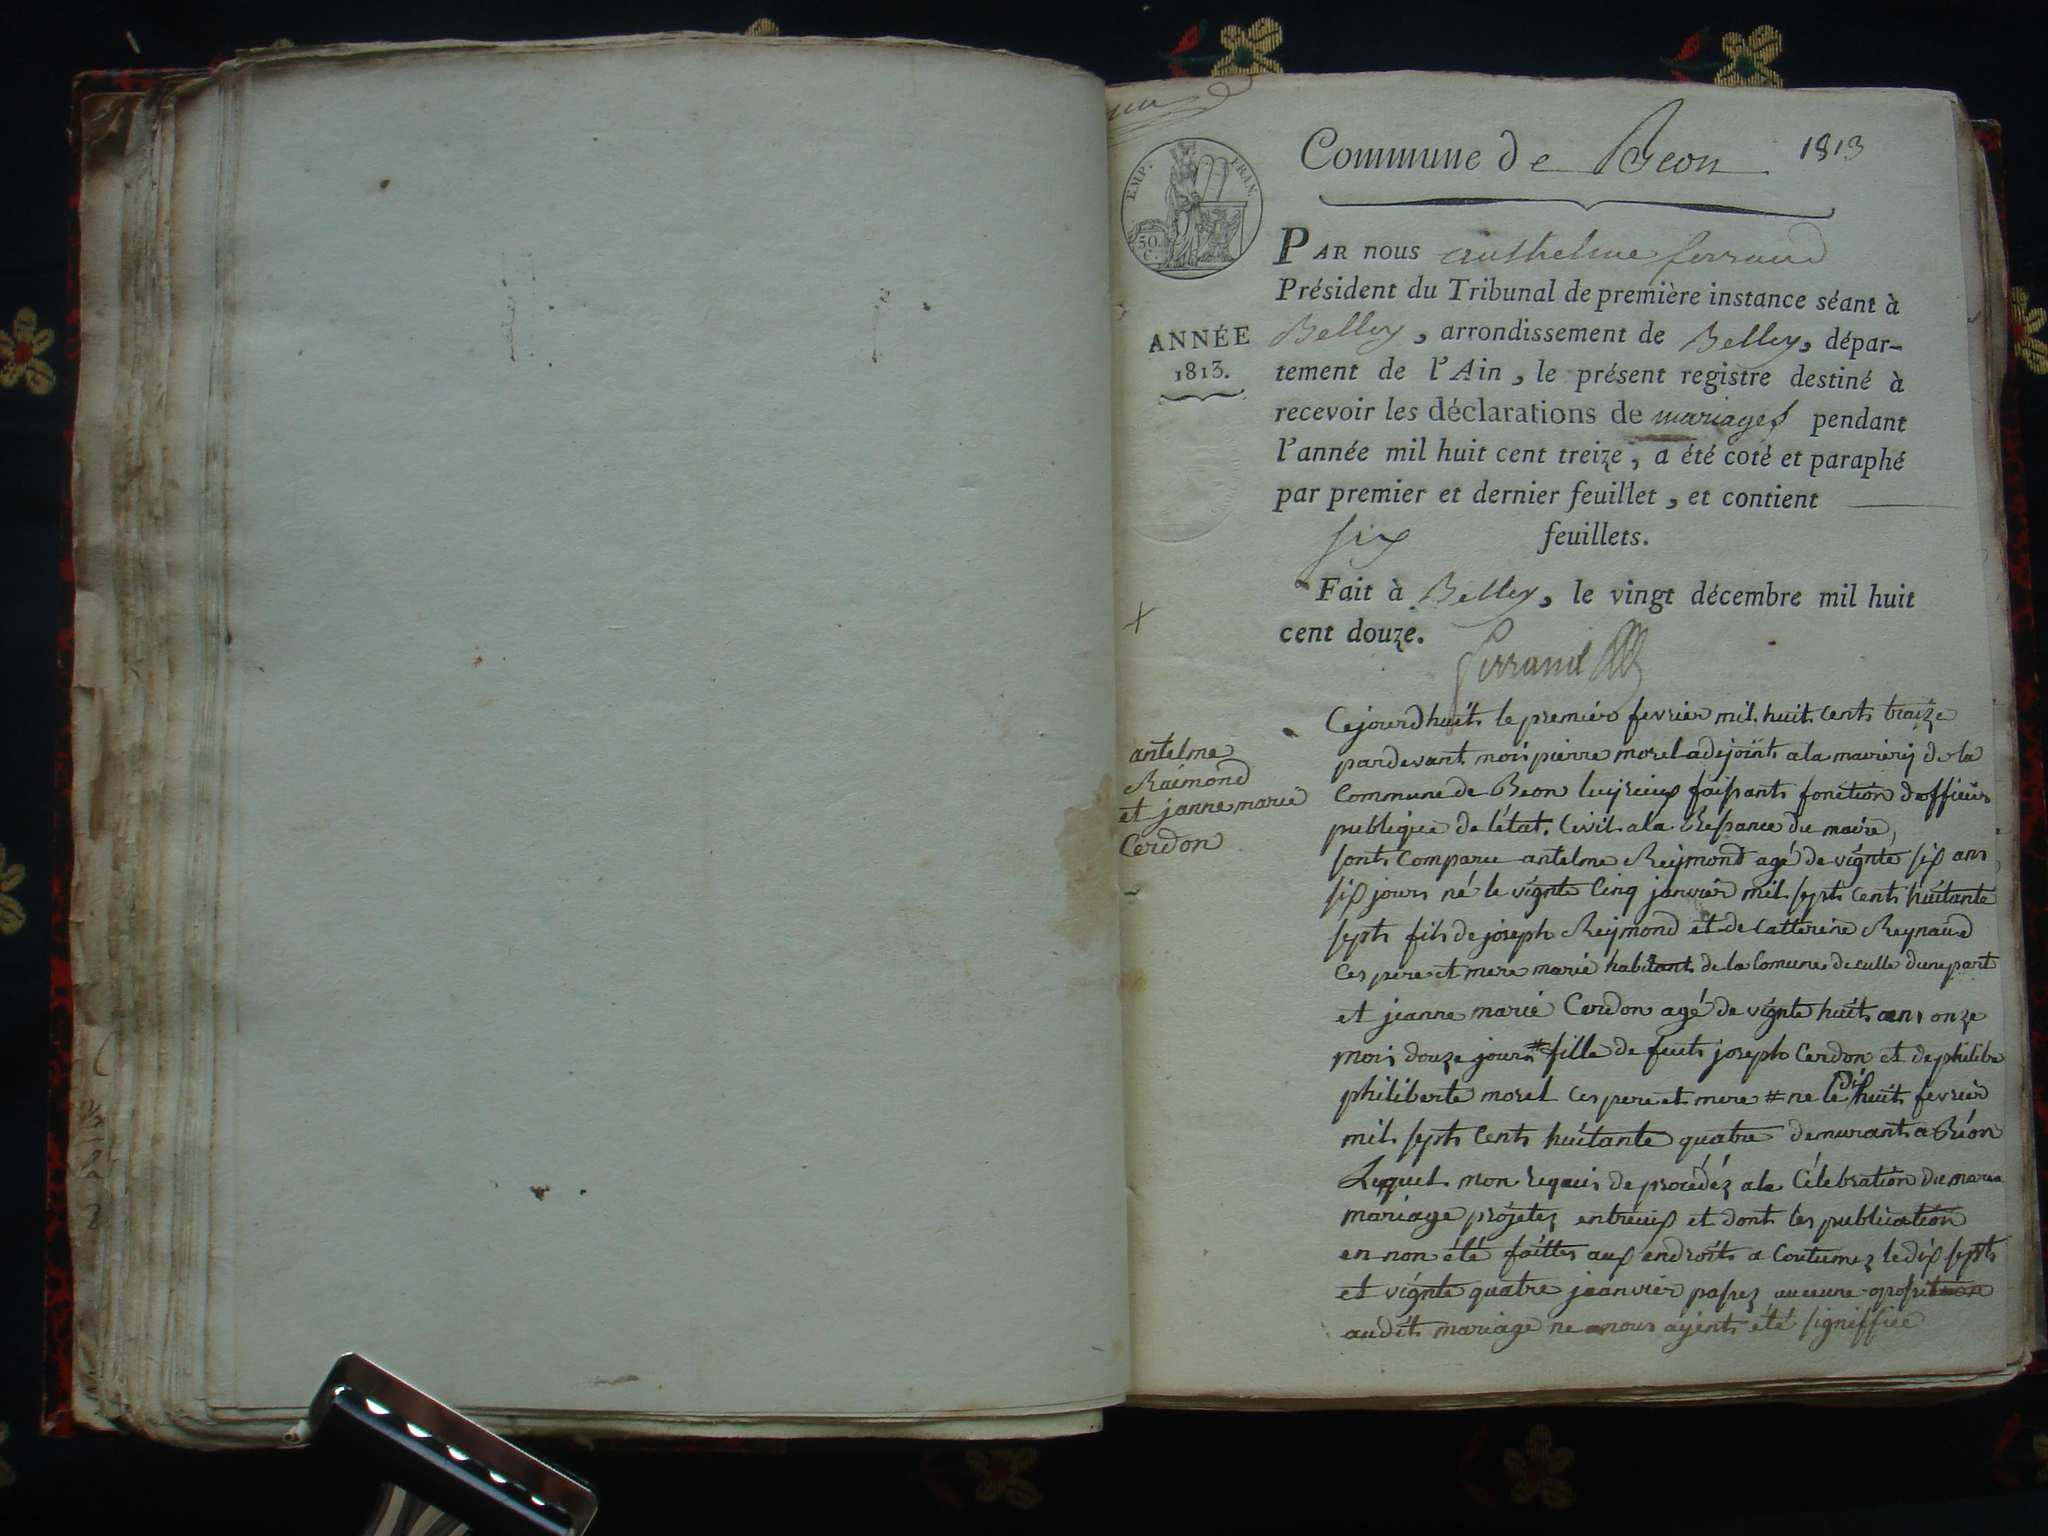 Commune de Beon 1813
EMP. FRAN.
50.
C.
PAR nous anthelme ferrand
Président du Tribunal de première instance séant à
Belley, arrondissement de Belley, dépar-
tement de l'Ain, le présent registre destiné à
recevoir les déclarations de mariages pendant
l'année mil huit cent treize, a été coté et paraphé
par premier et dernier feuillet, et contient
six feuillets.
Fait à Belley, le vingt décembre mil huit
cent douze.
ferrand
ANNÉE
1813.
antelme
Raimond
et janne marie
Cerdon
Cejourdhuit le premier fevrier mil huit cent traize
pardevant nous pierre morel adejoint a la mairerij de la
Commune de Beon luyrieux faisant fonction dofficier
publique de létat Civil a la du maire,
sont comparu antelme Reijmond agé de vignte six ans
six jours né le vignte Cinq janvier mil sept cent huitante
sept fils de joseph Reijmond et de Catterine Reynaud
Ces pere et mere marié habitant de la Comune de culle dunepart
et jeanne marie Cerdon agé de vignte huit ans onze
mois douze jours # fille de feut joseph Cerdon et de philibe
philiberte morel Ces pere et mere # ne le dix huit fevrier
mil sept cent huitante quatre demurant a Béon
Lequel mon requis de procédéz a la Célebration du maria
mariage projetez entreux et dont les publication
en non été faittes aux endroits a Coutumez le dix sept
et vignte quatre jeanvier passez aucune oposition
audit mariage ne anous ayent été signiffiée